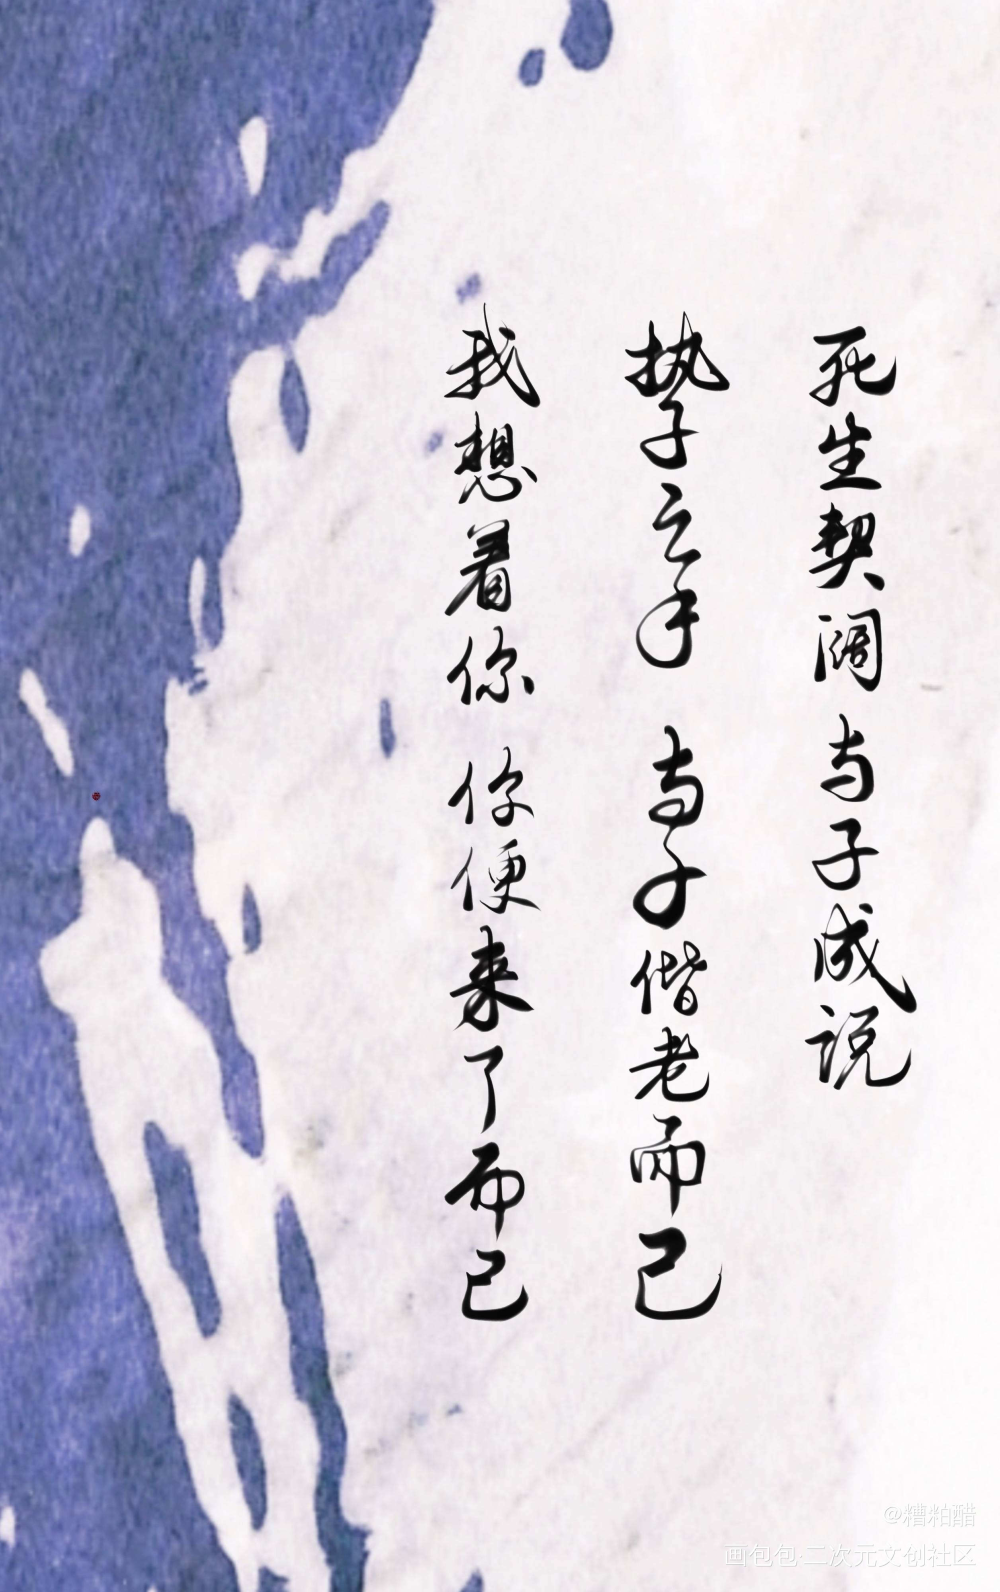 死生契阔 与子成说
执子之手 与子偕老而已
我想着你 你便来了而已
@糟粕醋
画包包·二次元文创社区